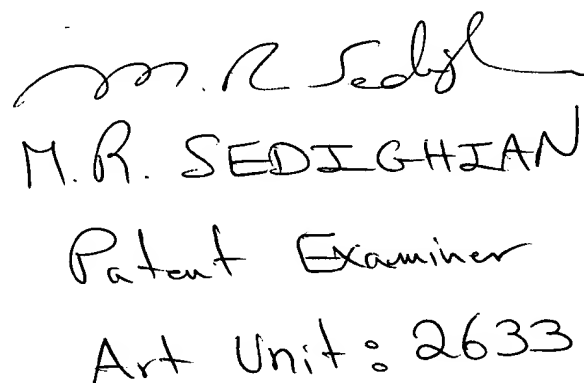 M. R Sedigh
M.R. SEDIGHIAN
Patent Examiner
Art Unit: 2633